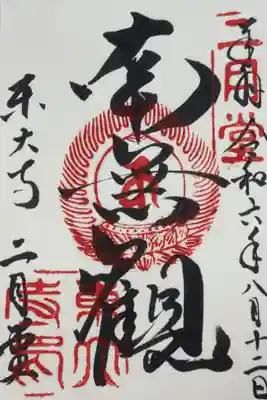 二月堂
奉拜 令和六年八月十二日
南無觀
東大寺 二月堂